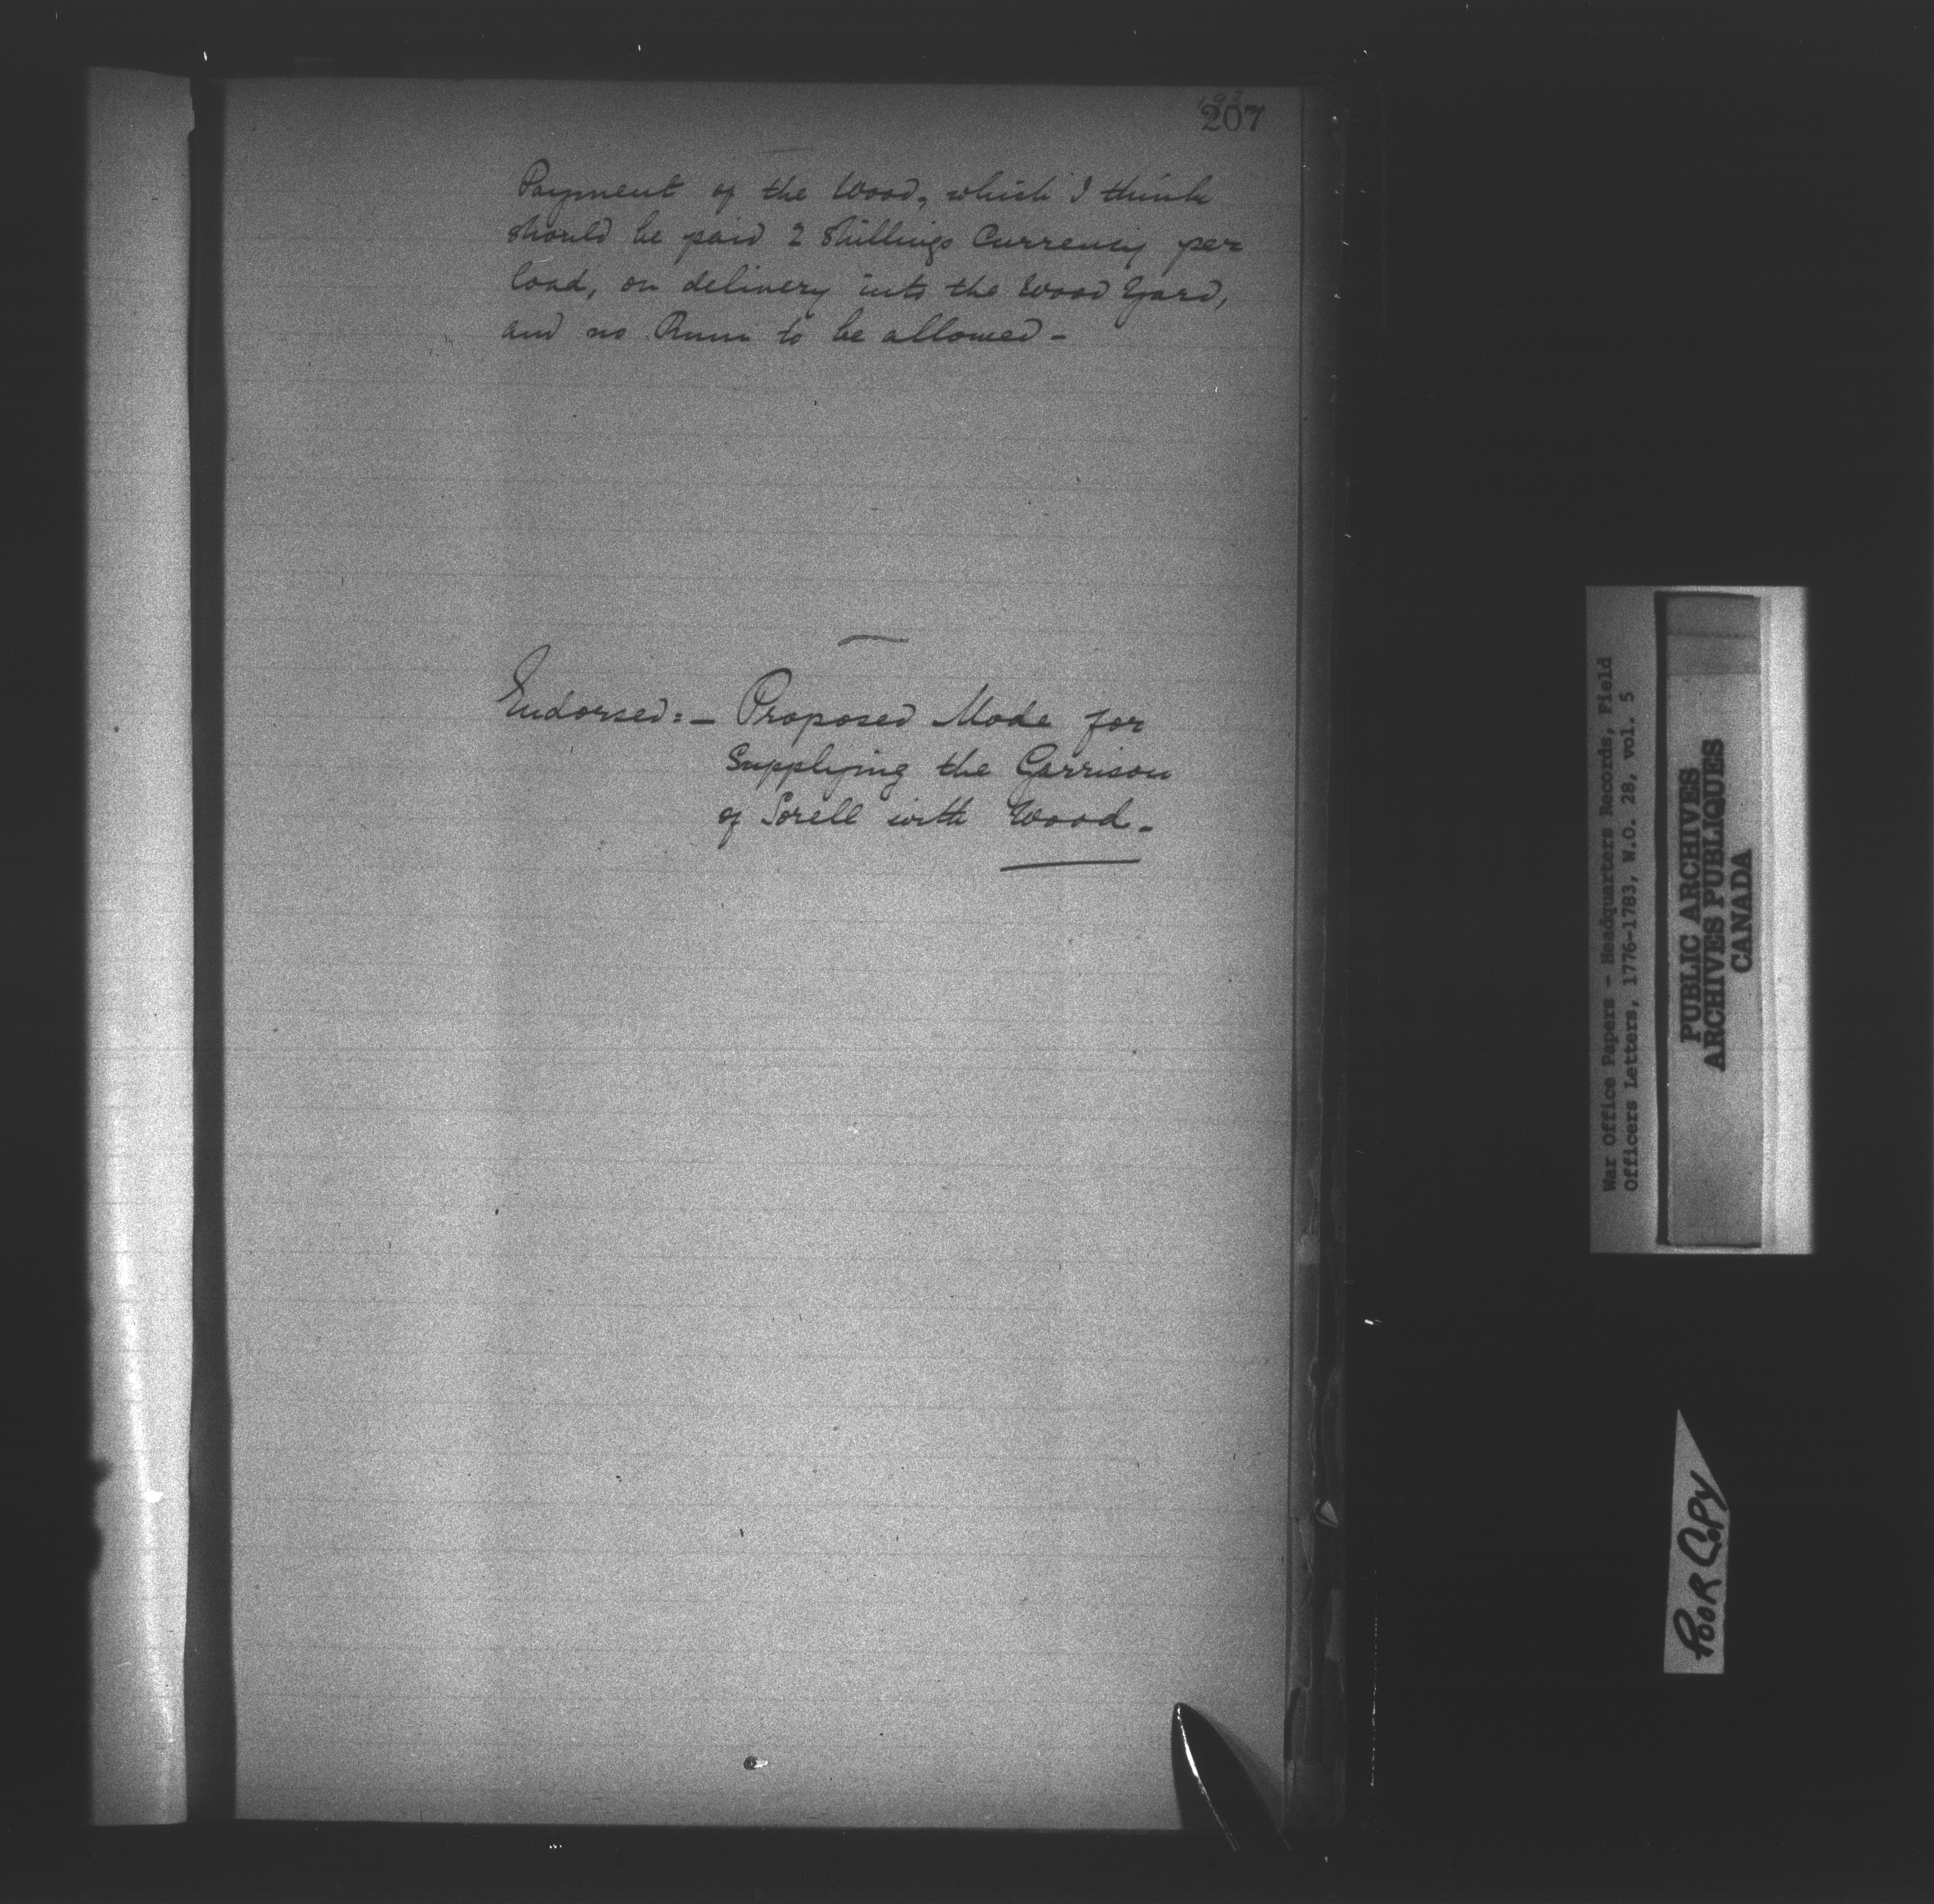 207
Payment of the Wood, which I think
should be paid 2 Shillings Currency per
load, on delivery into the Wood Yard,
and no Rum to be allowed -
Endorsed:- Proposed Mode for
Supplying the Garrison
of Sorell with Wood.
War Office Papers - Headquarters Records, Field
Officers Letters, 1776-1783, W.O. 28, vol. 5
PUBLIC ARCHIVES
ARCHIVES PUBLIQUES
CANADA
POOR COPY